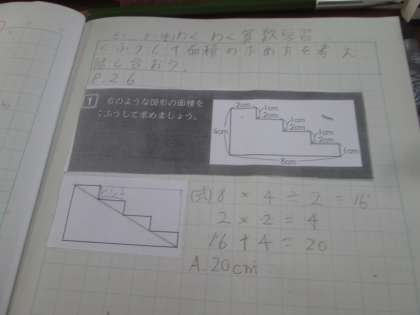 わくわく算数学習
くふうして面積の求め方を考え
話し合おう。
P.26
1 右のような図形の面積を
くふうして求めましょう。
2cm
1cm
2cm
1cm
2cm
1cm
2cm
1cm
4cm
8cm
(式) 8 × 4 ÷ 2 = 16
2 × 2 = 4
16 + 4 = 20
A. 20cm²